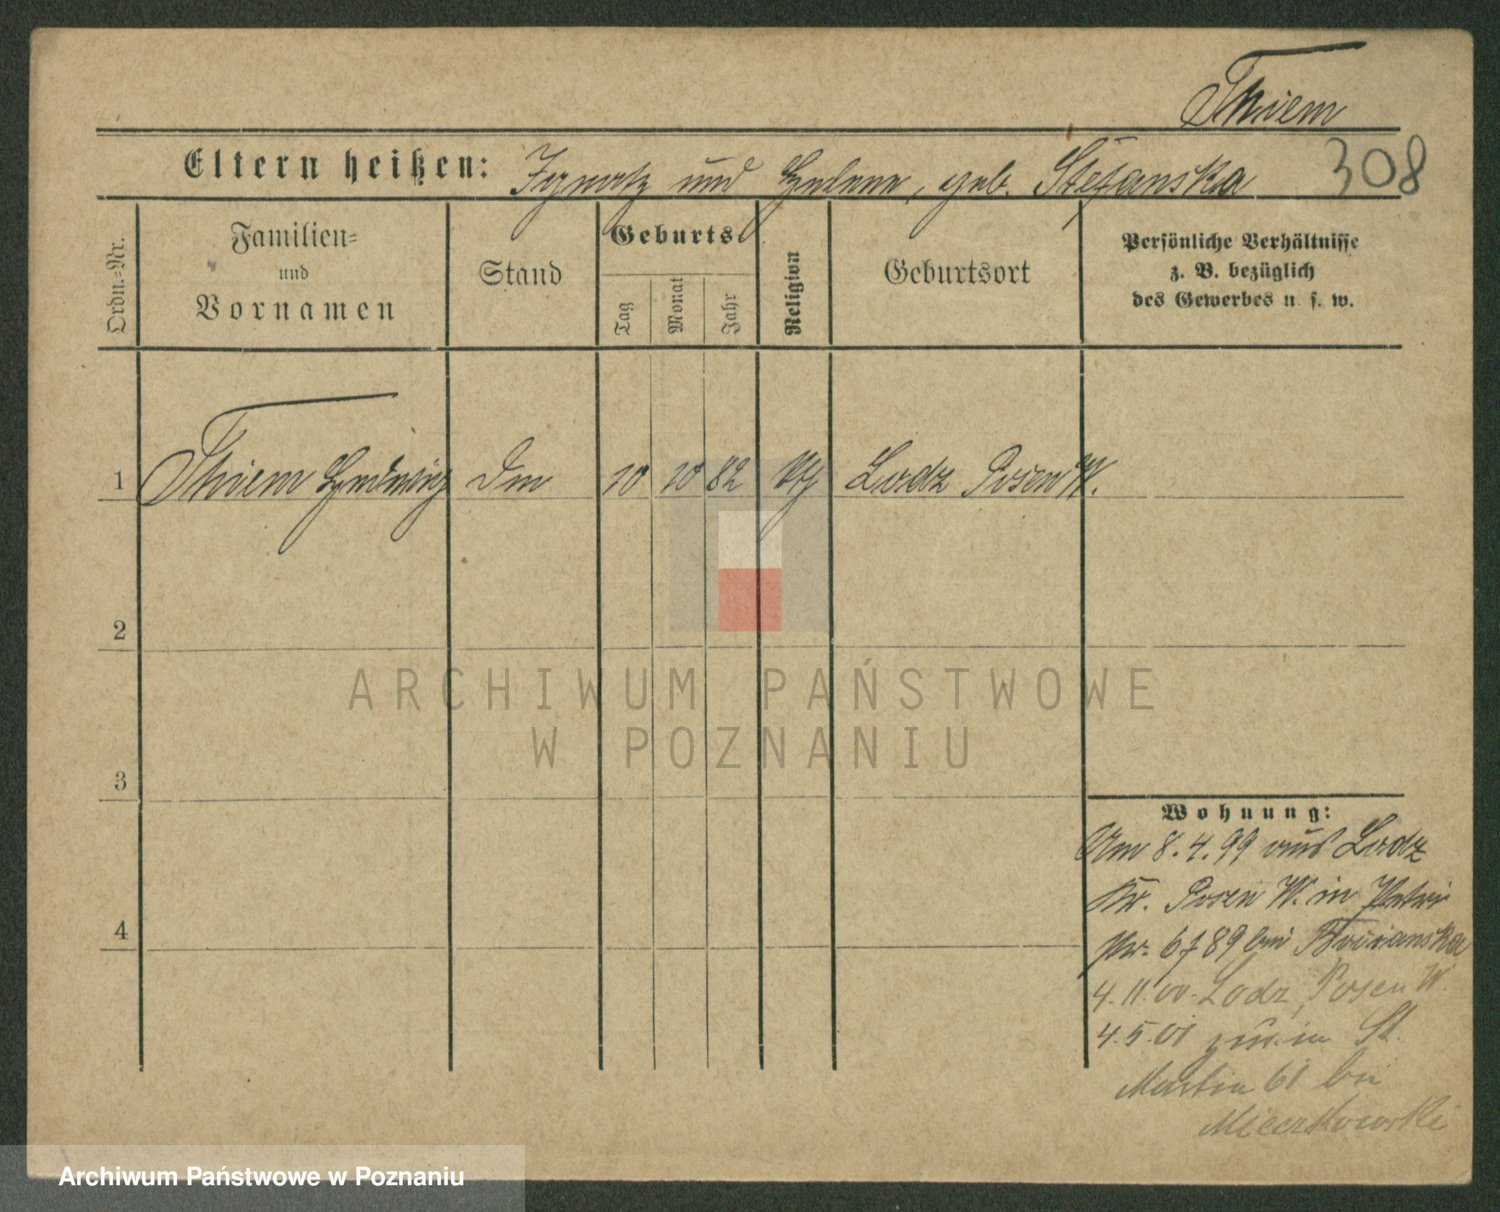 Thiem
Eltern heißen: Ignatz und Helene, geb. Stefanska 308
Ordn.-Nr.
Familien-
und
Vornamen
Stand
Geburts
Tag
Monat
Jahr
Religion
Geburtsort
Persönliche Verhältnisse
z. B. bezüglich
des Gewerbes u. s. w.
1 Thiem Hedwig 10 10 82 Lodz Posen W.
2
3
4
ARCHIWUM PAŃSTWOWE
W POZNANIU
Wohnung:
Am 8.4.99 aus Lodz
Kr. Posen W. in
bei
4.11.00. Lodz, Posen W.
4.5.01 zur. in St.
Martin 61 bei
Archiwum Państwowe w Poznaniu